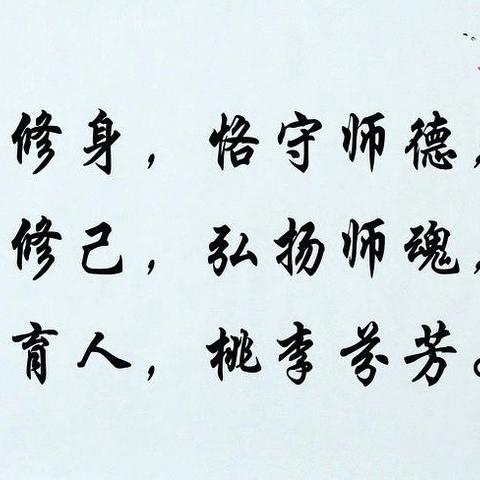 修身，恪守师德，
修己，弘扬师魂，
育人，桃李芬芳。